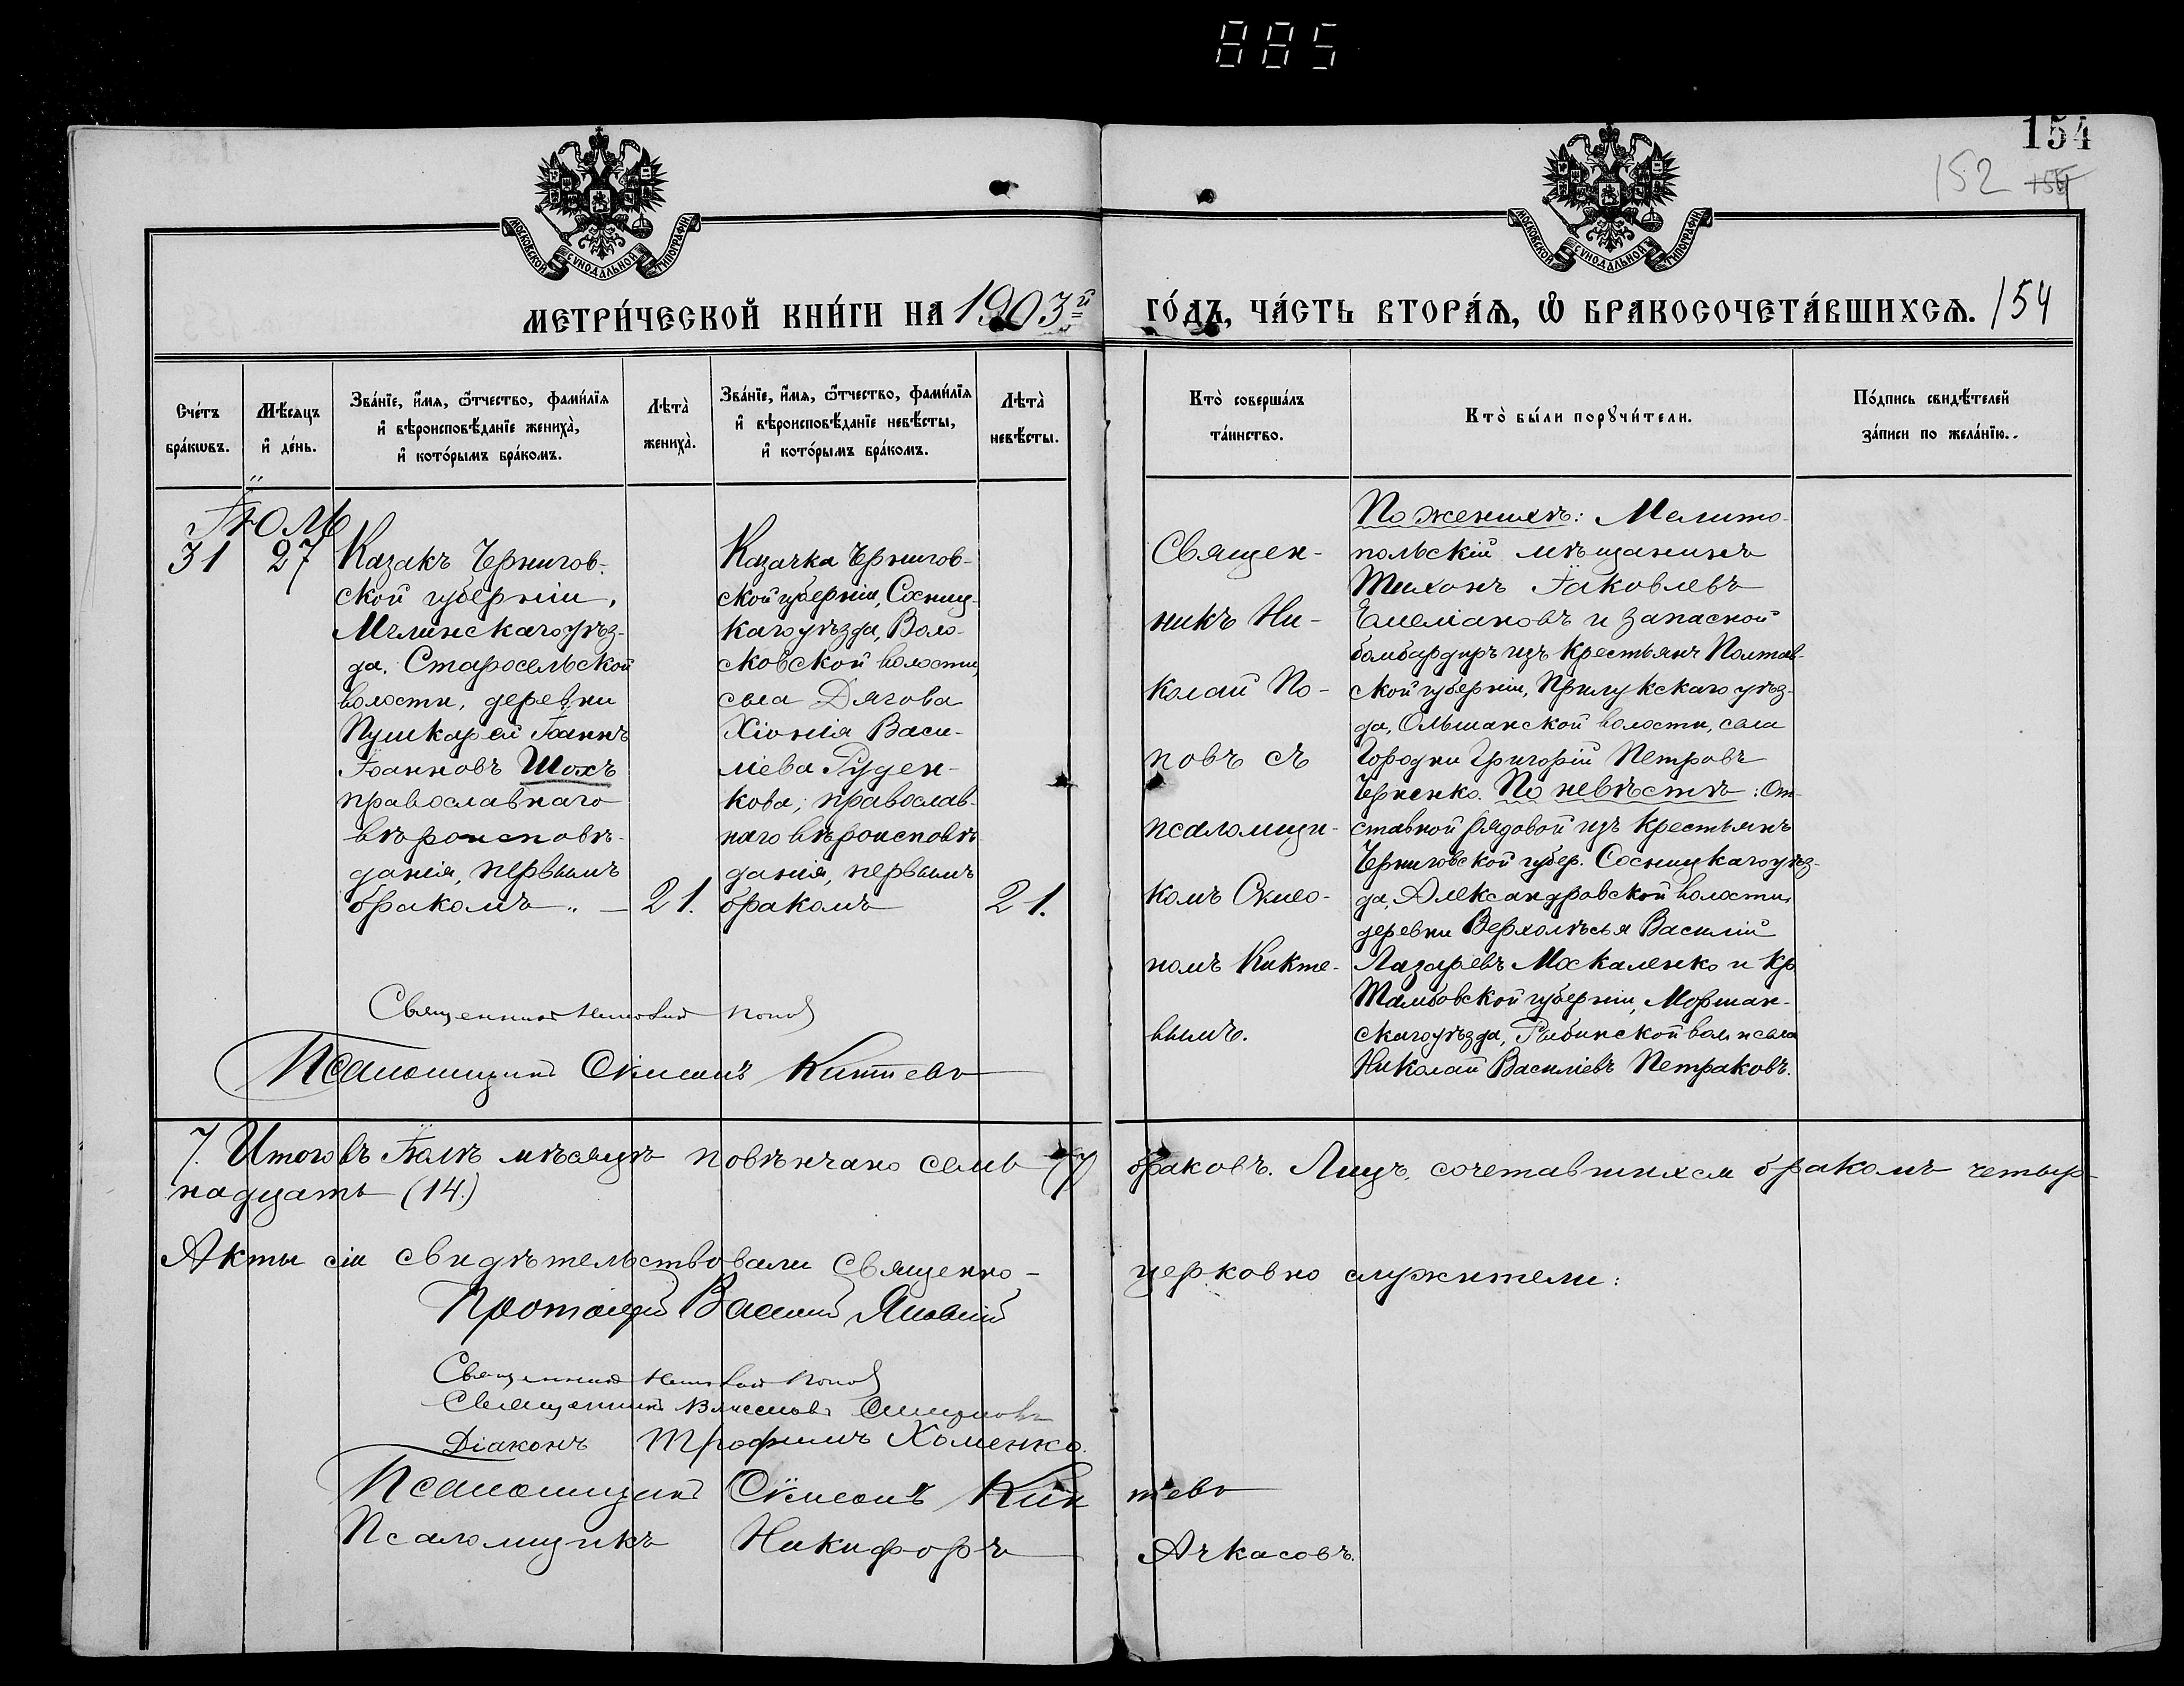 885
154
152 154
МОСКОВСКОЙ СѴНОДАЛЬНОЙ ТИПОГРАФІИ
МОСКОВСКОЙ СѴНОДАЛЬНОЙ ТИПОГРАФІИ
МЕТРИ́ЧЕСКОЙ КНИ́ГИ НА 1903й ГО́ДЪ, ЧА́СТЬ ВТОРА́Ѧ, Ѽ БРАКОСОЧЕТА́ВШИХСѦ. 154
Сче́тъ
бра́кѡвъ.
Мѣ́сяцъ
и҆ де́нь.
Зва́нїе, и҆́мѧ, ѻ҆́тчество, фами́лїѧ
и҆ вѣроисповѣ́данїе жениха̀,
и҆ кото́рымъ бра́комъ.
Лѣта̀
жениха̀.
Зва́нїе, и҆́мѧ, ѻ҆́тчество, фами́лїѧ
и҆ вѣроисповѣ́данїе невѣ́сты,
и҆ кото́рымъ бра́комъ.
Лѣта̀
невѣ́сты.
Кто̀ соверша́лъ
та́инство.
Кто̀ бы́ли порꙋчи́тели.
По́дпись свидѣ́телей
за́писи по жела́нїю..
Іюль
31
27
Казакъ Чернигов-
ской губерніи,
Мглинскаго уѣз-
да, Старосельской
волости, деревни
Пушкарей Іоаннъ
Іоанновъ Шохъ
православнаго
вѣроисповѣ-
данія, первымъ
бракомъ
21.
Казачка Чернигов-
ской губерніи, Сосниц-
каго уѣзда, Воло-
сковской волости,
села Дягова
Хіонія Васи-
ліева Руден-
кова, православ-
наго вѣроисповѣ-
данія, первымъ
бракомъ
21.
Священ-
никъ Ни-
колай По-
повъ съ
псаломщи-
комъ Симео-
номъ Кикте-
вымъ.
По женихѣ: Мелито-
польскій мѣщанинъ
Тихонъ Іаковлевъ
Емеліановъ и запасной
бомбардиръ изъ крестьянъ Полтав-
ской губерніи, Прилукскаго уѣз-
да, Ольшанской волости, села
Городни Григорій Петровъ
Черненко. По невѣстѣ: От-
ставной рядовой изъ крестьянъ
Черниговской губер. Сосницкаго уѣз-
да, Александровской волости,
деревни Верхолѣсья Василій
Лазаревъ Москаленко и кр.
Тамбовской губерніи, Моршан-
скаго уѣзда, Рыбинской вол. и села
Николай Василіевъ Петраковъ.
Священникъ Николай Попов
Псаломщикъ Симеонъ Киктевъ
7. Итого въ Іюлѣ мѣсяцѣ повѣнчано семь (7) браковъ. Лицъ, сочетавшихся бракомъ четыр-
надцать (14.)
Акты сіи свидѣтельствовали священно-церковно служители:
Протоіерей Василій
Священникъ Николай Попов
Священникъ
Діаконъ Трофимъ Хоменко.
Псаломщикъ Симеонъ Киктевъ
Псаломщикъ Никифоръ Ачкасовъ.